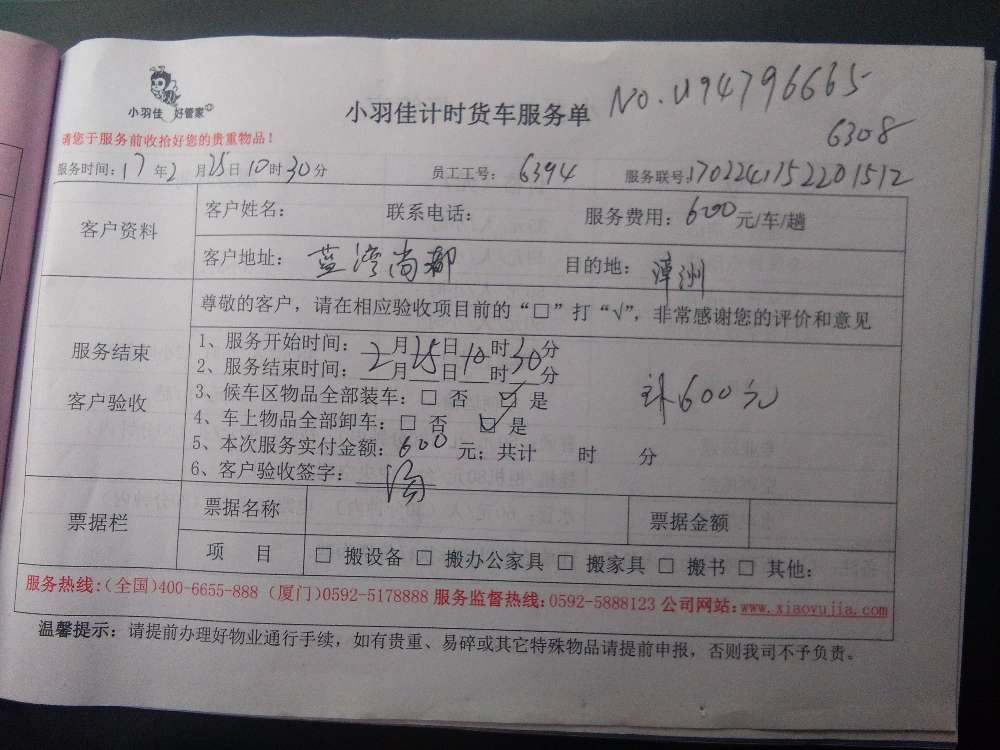 小羽佳 好管家
小羽佳计时货车服务单 No.U94796665
请您于服务前收拾好您的贵重物品！ 6308
服务时间：17年2月25日10时30分 员工工号：6394 服务联号：170224115220 1512
客户资料 客户姓名： 联系电话： 服务费用：600元/车/趟
客户地址：蓝湾尚都 目的地：漳州
尊敬的客户，请在相应验收项目前的“□”打“√”，非常感谢您的评价和意见
服务结束 客户验收
1、服务开始时间：2月25日10时30分
2、服务结束时间：___月___日___时___分
3、候车区物品全部装车：□ 否 ☑ 是
4、车上物品全部卸车：□ 否 ☑ 是
计600元
5、本次服务实付金额：600元；共计 时 分
6、客户验收签字：
票据栏 票据名称 票据金额
项 目 □ 搬设备 □ 搬办公家具 □ 搬家具 □ 搬书 □ 其他：
服务热线：（全国）400-6655-888（厦门）0592-5178888 服务监督热线：0592-5888123 公司网站：www.xiaoyujia.com
温馨提示：请提前办理好物业通行手续，如有贵重、易碎或其它特殊物品请提前申报，否则我司不予负责。